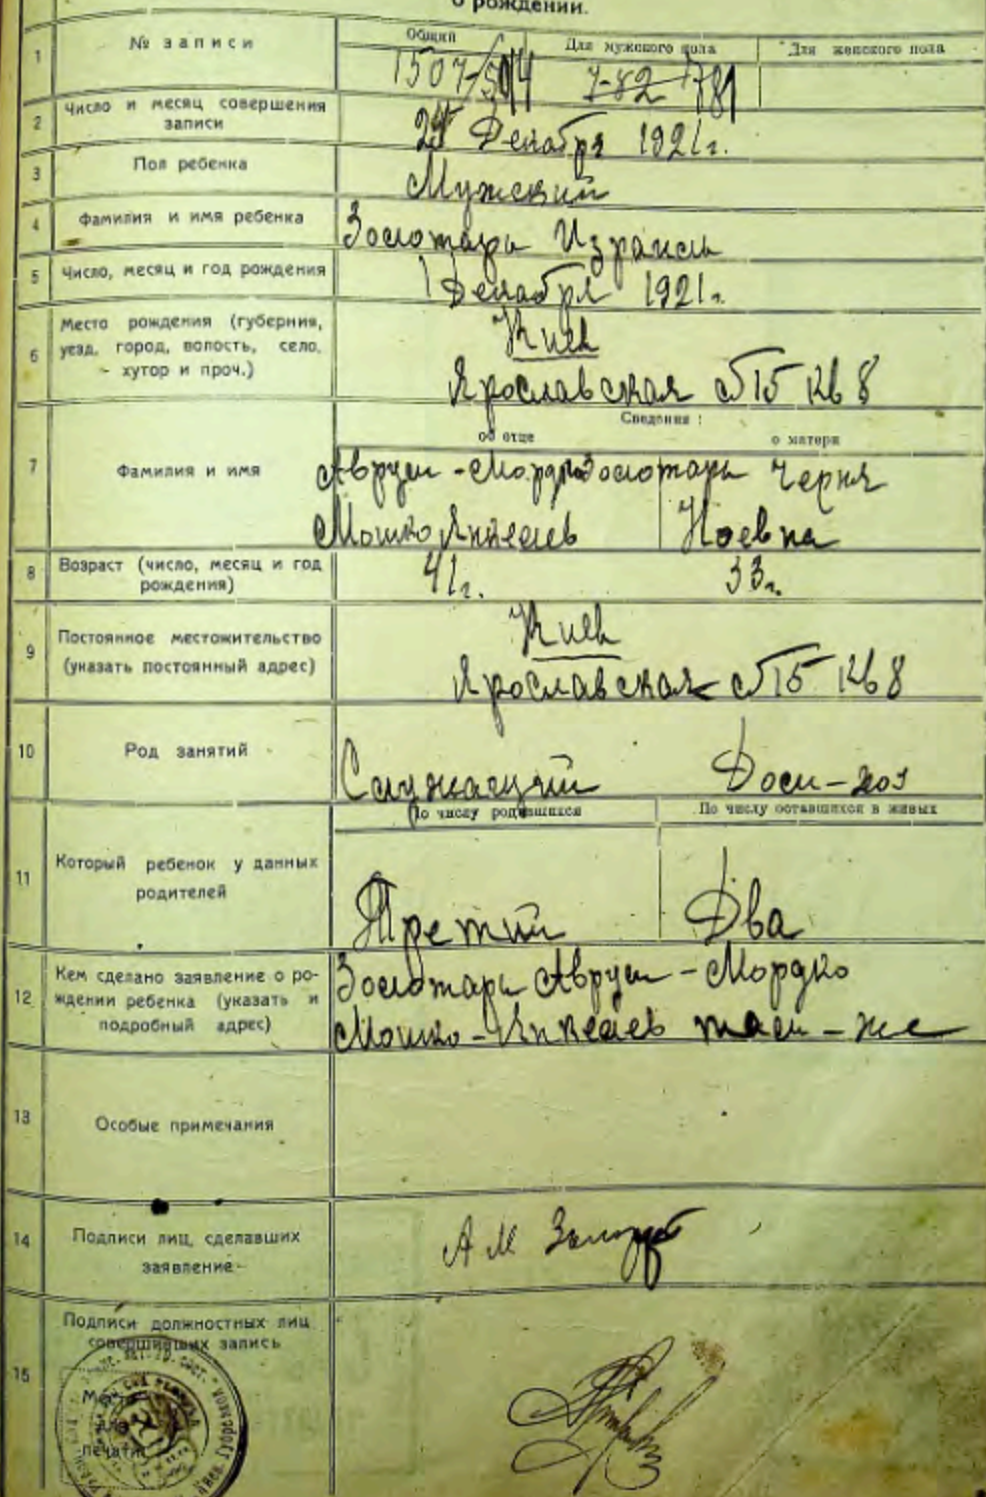 о рождении.
1 № записи
Общий Для мужского пола Для женского пола
1507/5014 7-82 781
2 Число и месяц совершения
записи
Декабря 1921г.
3 Пол ребенка Мужский
4 Фамилия и имя ребенка Золотарь Израиль
5 Число, месяц и год рождения 1 Декабря 1921г.
6 Место рождения (губерния,
уезд, город, волость, село,
хутор и проч.)
Киев
Ярославская №15 кв 8
Сведения:
об отце о матери
7 Фамилия и имя
Аврум-Мордко Золотарь Черня
Мошко Янкелев Ноевна
8 Возраст (число, месяц и год
рождения)
41г. 33г.
9 Постоянное местожительство
(указать постоянный адрес)
Киев
Ярославская №15 кв 8
10 Род занятий Служащий Дом-хоз
По числу родившихся По числу оставшихся в живых
11 Который ребенок у данных
родителей
Третий Два
12 Кем сделано заявление о ро-
ждении ребенка (указать и
подробный адрес)
Золотарь Аврум-Мордко
Мошко-Янкелев там-же
13 Особые примечания
14 Подписи лиц, сделавших
заявление
А М
15 Подписи должностных лиц
совершивших запись
для
печати